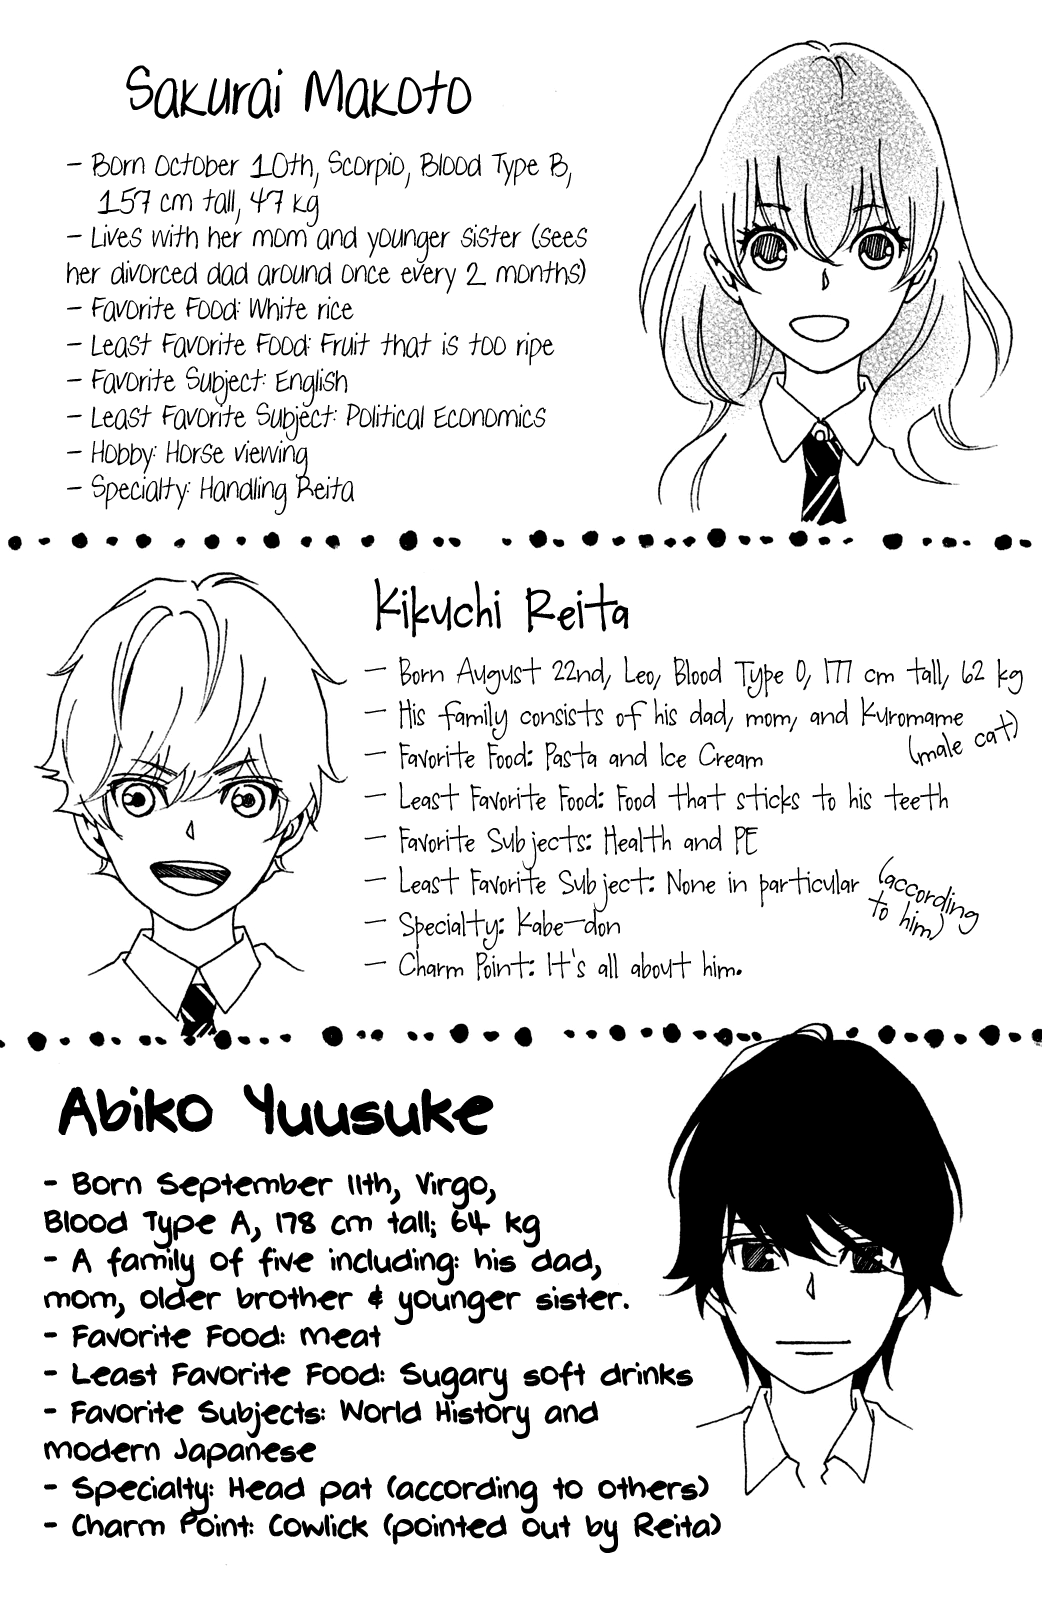 Sakurai Makoto
- Born October 10th, Scorpio, Blood Type B,
157 cm tall, 47 kg
- Lives with her mom and younger sister (sees
her divorced dad around once every 2 months)
- Favorite Food: White rice
- Least Favorite Food: Fruit that is too ripe
- Favorite Subject: English
- Least Favorite Subject: Political Economics
- Hobby: Horse viewing
- Specialty: Handling Reita
Kikuchi Reita
- Born August 22nd, Leo, Blood Type O, 177 cm tall, 62 kg
- His family consists of his dad, mom, and Kuromame
(male cat)
- Favorite Food: Pasta and Ice Cream
- Least Favorite Food: Food that sticks to his teeth
- Favorite Subjects: Health and PE
- Least Favorite Subject: None in particular (according
to him)
- Specialty: Kabe-don
- Charm Point: It's all about him.
Abiko Yuusuke
- Born September 11th, Virgo,
Blood Type A, 178 cm tall; 64 kg
- A family of five including: his dad,
mom, older brother & younger sister.
- Favorite Food: Meat
- Least Favorite Food: Sugary soft drinks
- Favorite Subjects: World History and
modern Japanese
- Specialty: Head pat (according to others)
- Charm Point: Cowlick (pointed out by Reita)